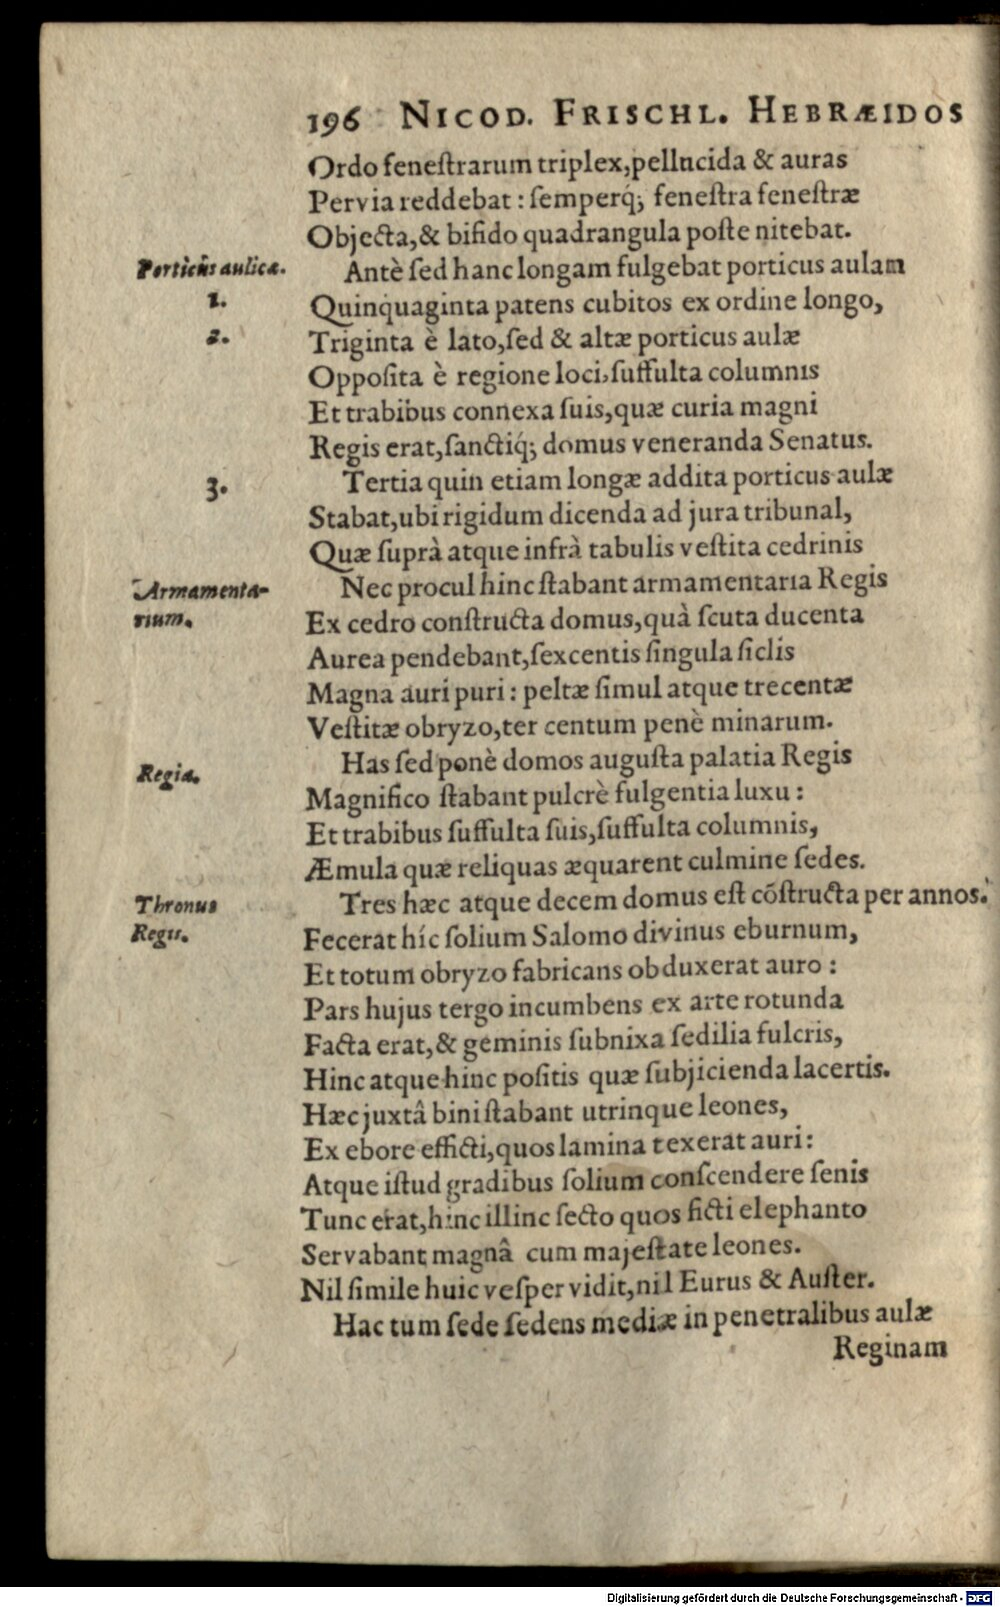 196 NICOD. FRISCHL. HEBRÆIDOS
Ordo feneſtrarum triplex,pellucida & auras
Pervia reddebat : ſemperq́; feneſtra feneſtræ
Objecta,& bifido quadrangula poſte nitebat.
Porticus aulicæ.
Antè ſed hanc longam fulgebat porticus aulam
1.
Quinquaginta patens cubitos ex ordine longo,
2.
Triginta è lato,ſed & altæ porticus aulæ
Oppoſita è regione loci,ſuffulta columnis
Et trabibus connexa ſuis,quæ curia magni
Regis erat,ſanctiq́; domus veneranda Senatus.
3.
Tertia quin etiam longæ addita porticus aulæ
Stabat,ubi rigidum dicenda ad jura tribunal,
Quæ ſuprà atque infrà tabulis veſtita cedrinis
Armamenta-
rium.
Nec procul hinc ſtabant armamentaria Regis
Ex cedro conſtructa domus,quà ſcuta ducenta
Aurea pendebant,ſexcentis ſingula ſiclis
Magna auri puri : peltæ ſimul atque trecentæ
Veſtitæ obryzo,ter centum penè minarum.
Regia.
Has ſed ponè domos auguſta palatia Regis
Magnifico ſtabant pulcrè fulgentia luxu :
Et trabibus ſuffulta ſuis,ſuffulta columnis,
Æmula quæ reliquas æquarent culmine ſedes.
Thronus
Regis.
Tres hæc atque decem domus eſt cõſtructa per annos.
Fecerat híc ſolium Salomo divinus eburnum,
Et totum obryzo fabricans obduxerat auro :
Pars hujus tergo incumbens ex arte rotunda
Facta erat,& geminis ſubnixa ſedilia fulcris,
Hinc atque hinc poſitis quæ ſubjicienda lacertis.
Hæc juxtâ bini ſtabant utrinque leones,
Ex ebore efficti,quos lamina texerat auri :
Atque iſtud gradibus ſolium conſcendere ſenis
Tunc erat,hinc illinc ſecto quos ficti elephanto
Servabant magnâ cum majeſtate leones.
Nil ſimile huic veſper vidit,nil Eurus & Auſter.
Hac tum ſede ſedens mediæ in penetralibus aulæ
Reginam
Digitalisierung gefördert durch die Deutsche Forschungsgemeinschaft - DFG